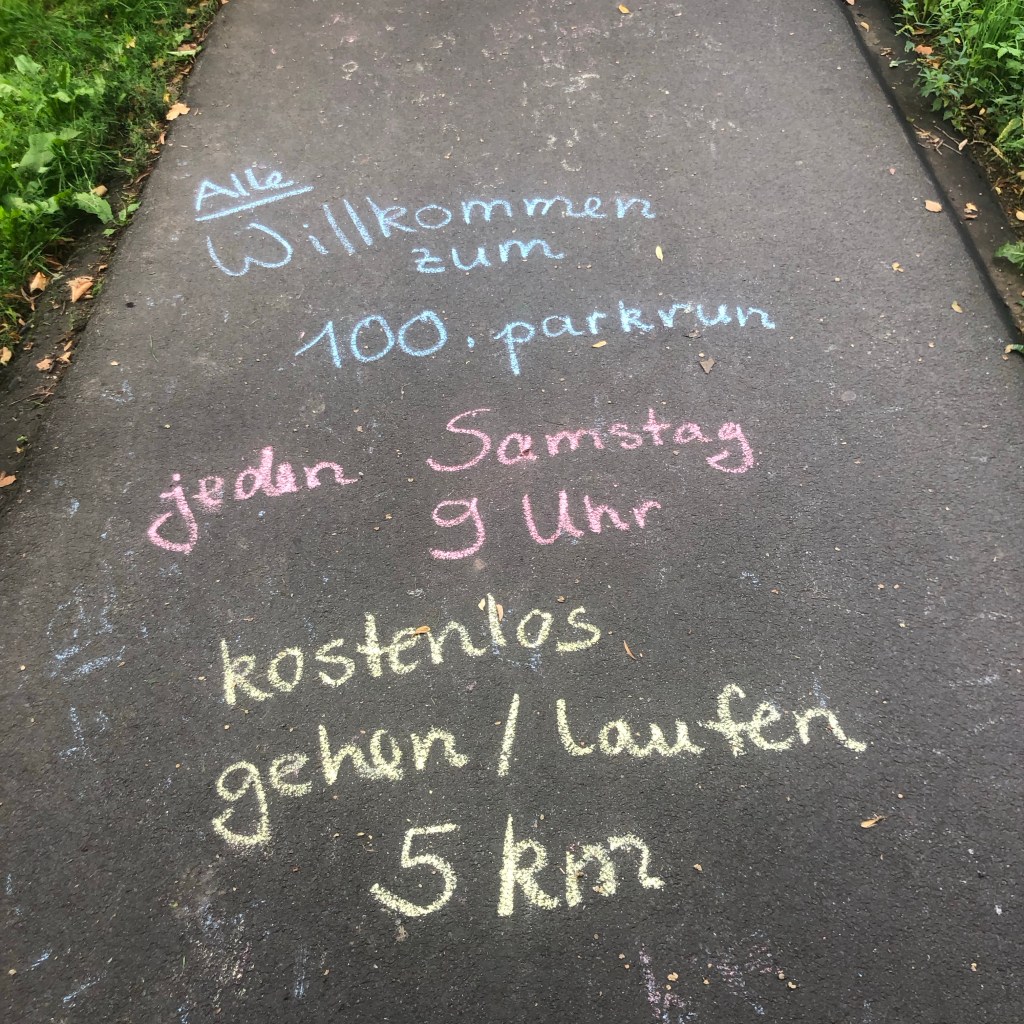 Alle
Willkommen
zum
100. parkrun
jeden Samstag
9 Uhr
kostenlos
gehen / laufen
5 km